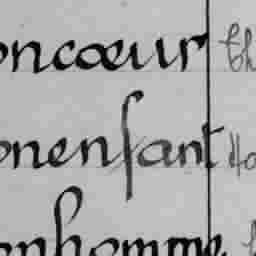 oncœur Ch
onenfant Ho
onhomme